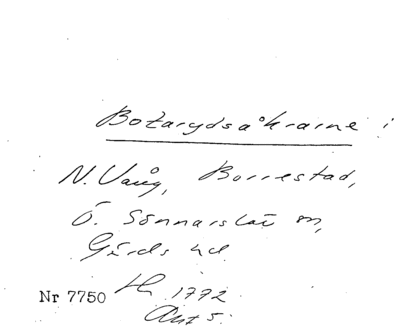 Botarydsåkrarne i
N. Vång, Borrestad,
Ö. Sönnarslöv sn,
Gärds hd
Nr 7750 1772
Akt 5.